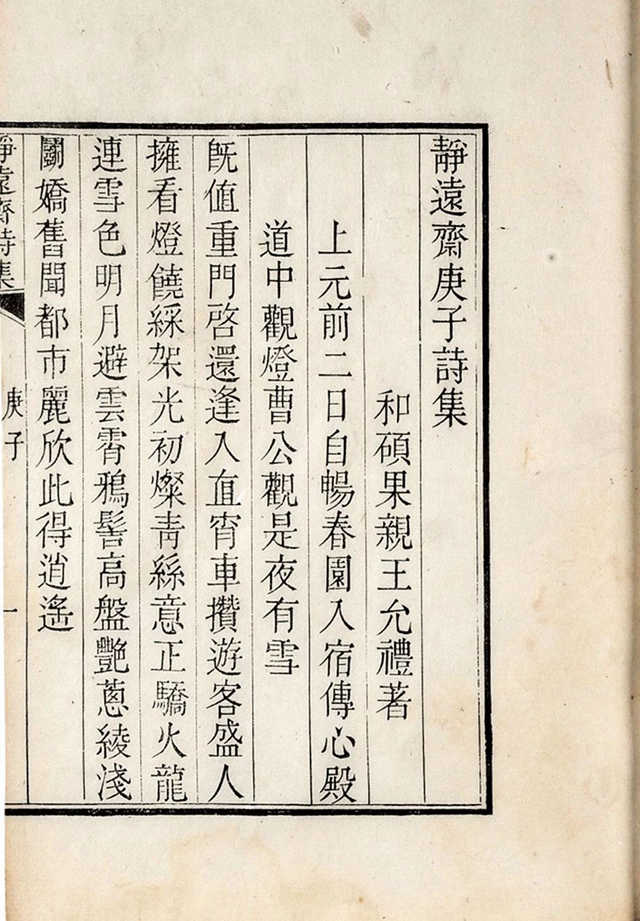 靜遠齋庚子詩集
和碩果親王允禮著
上元前二日自暢春園入宿傳心殿
道中觀燈曹公觀是夜有雪
旣值重門啓還逢入直宵車攢遊客盛人
擁看燈饒綵架光初燦青絲意正驕火龍
連雪色明月避雲霄鴉髻高盤艷蔥綾淺
鬭嬌舊聞都市麗欣此得逍遙
靜遠齋詩集 庚子 一